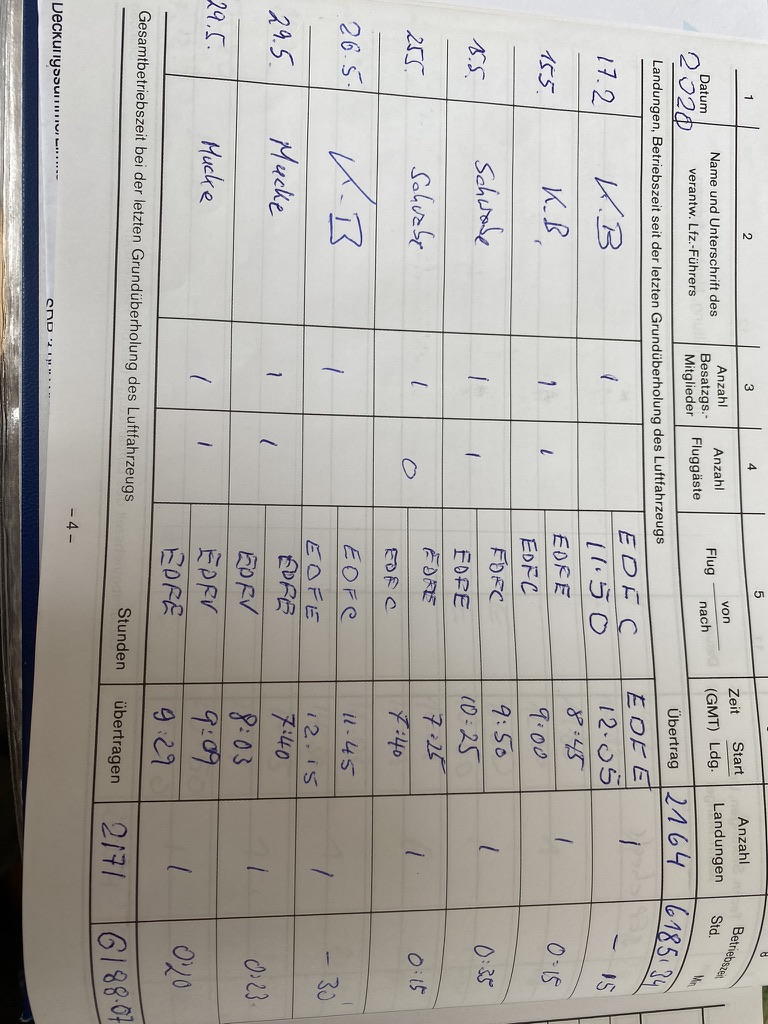 1 2 3 4 5
Datum Name und Unterschrift des verantw. Lfz.-Führers Anzahl Besatzgs.-Mitglieder Anzahl Fluggäste Flug von nach Zeit (GMT) Start Ldg. Anzahl Landungen Betriebszeit Std.
2020
Landungen, Betriebszeit seit der letzten Grundüberholung des Luftfahrzeugs Übertrag 2164 6185:34
17.2 K.B 1 EDFC EDFE 1 - 15
11.50 12.05
15.5. K.B. 1 1 EDFE 8:45 1 0:15
EDFC 9:00
15.5. Schwabe 1 1 EDFC 9:50 1 0:35
EDFE 10:25
25.5. Schwabe 1 0 EDFE 7:25 1 0:15
EDFC 7:40
26.5. K.B 1 EDFC 11.45 1 - 30'
EDFE 12.15
29.5. Mucke 1 1 EDFE 7:40 1 0:23
EDFV 8:03
29.5. Mucke 1 1 EDFV 9:09 1 0:20
EDFE 9:29
Gesamtbetriebszeit bei der letzten Grundüberholung des Luftfahrzeugs Stunden übertragen 2171 6188:07
- 4 -